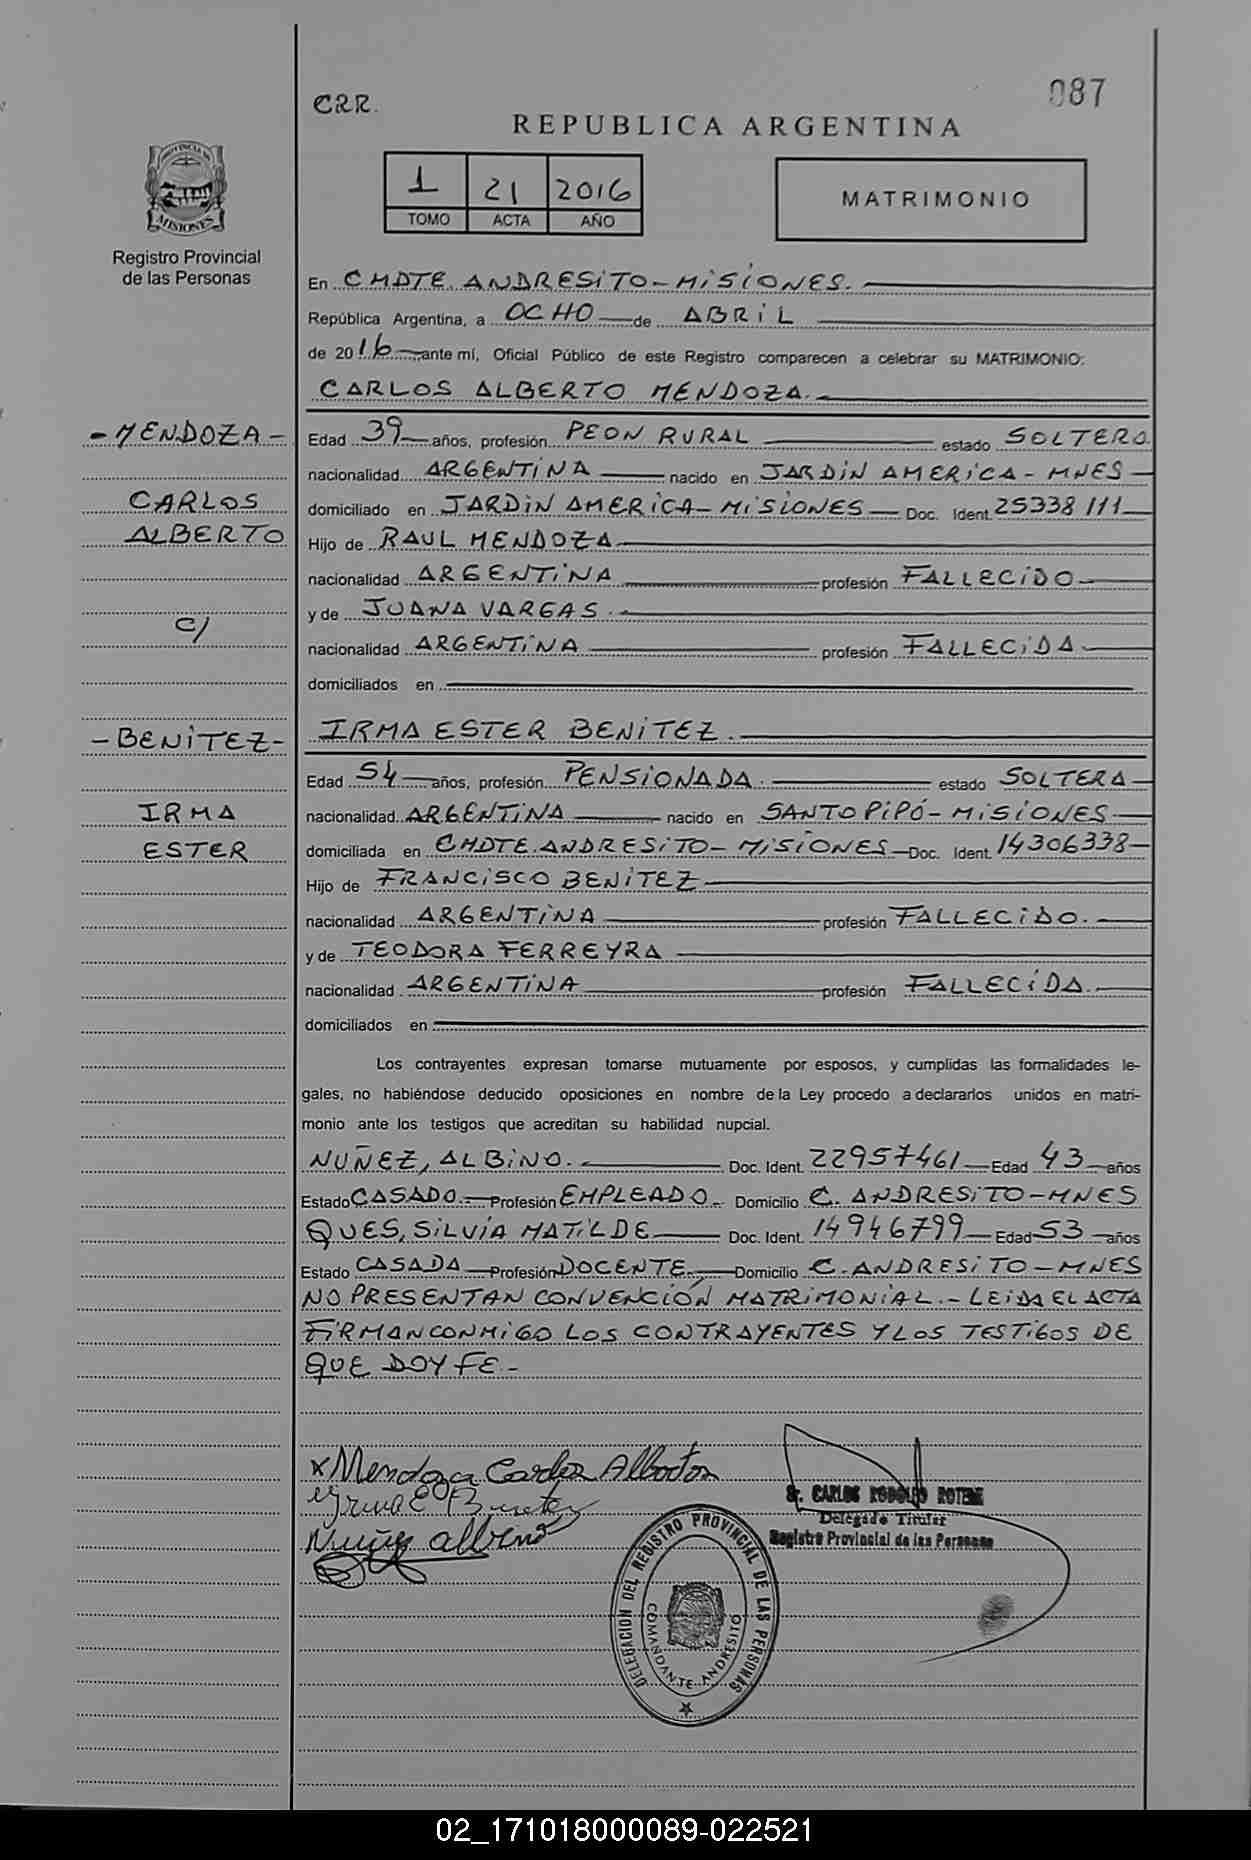 087
CRR.
REPUBLICA ARGENTINA
1 21 2016
TOMO ACTA AÑO
MATRIMONIO
PROVINCIA DE
MISIONES
Registro Provincial
de las Personas
En CMDTE. ANDRESITO - MISIONES.
República Argentina, a OCHO de ABRIL
de 2016 ante mí, Oficial Público de este Registro comparecen a celebrar su MATRIMONIO:
CARLOS ALBERTO MENDOZA.
- MENDOZA -
CARLOS
ALBERTO
c/
- BENITEZ -
IRMA
ESTER
Edad 39 años, profesión PEON RURAL estado SOLTERO
nacionalidad ARGENTINA nacido en JARDIN AMERICA - MNES
domiciliado en JARDIN AMERICA - MISIONES Doc. Ident. 25338111
Hijo de RAUL MENDOZA
nacionalidad ARGENTINA profesión FALLECIDO
y de JUANA VARGAS.
nacionalidad ARGENTINA profesión FALLECIDA
domiciliados en
IRMA ESTER BENITEZ.
Edad 54 años, profesión PENSIONADA. estado SOLTERA
nacionalidad ARGENTINA nacido en SANTO PIPÓ - MISIONES
domiciliada en CMDTE. ANDRESITO - MISIONES Doc. Ident. 14306338
Hijo de FRANCISCO BENITEZ
nacionalidad ARGENTINA profesión FALLECIDO.
y de TEODORA FERREYRA
nacionalidad ARGENTINA profesión FALLECIDA.
domiciliados en
Los contrayentes expresan tomarse mutuamente por esposos, y cumplidas las formalidades le-
gales, no habiéndose deducido oposiciones en nombre de la Ley procedo a declararlos unidos en matri-
monio ante los testigos que acreditan su habilidad nupcial.
NUÑEZ, ALBINO. Doc. Ident. 22957461 Edad 43 años
Estado CASADO. Profesión EMPLEADO. Domicilio C. ANDRESITO - MNES
QUES, SILVIA MATILDE Doc. Ident. 14946799 Edad 53 años
Estado CASADA Profesión DOCENTE. Domicilio C. ANDRESITO - MNES
NO PRESENTAN CONVENCIÓN MATRIMONIAL. - LEIDA EL ACTA
FIRMAN CONMIGO LOS CONTRAYENTES Y LOS TESTIGOS DE
QUE DOY FE. -
x Mendoza Carlos Alberto
Irma E Benitez
Nuñez albino
Sr. CARLOS RODOLFO ROTENE
Delegado Titular
Registro Provincial de las Personas
DELEGACION DEL REGISTRO PROVINCIAL DE LAS PERSONAS
COMANDANTE ANDRESITO
02_171018000089-022521